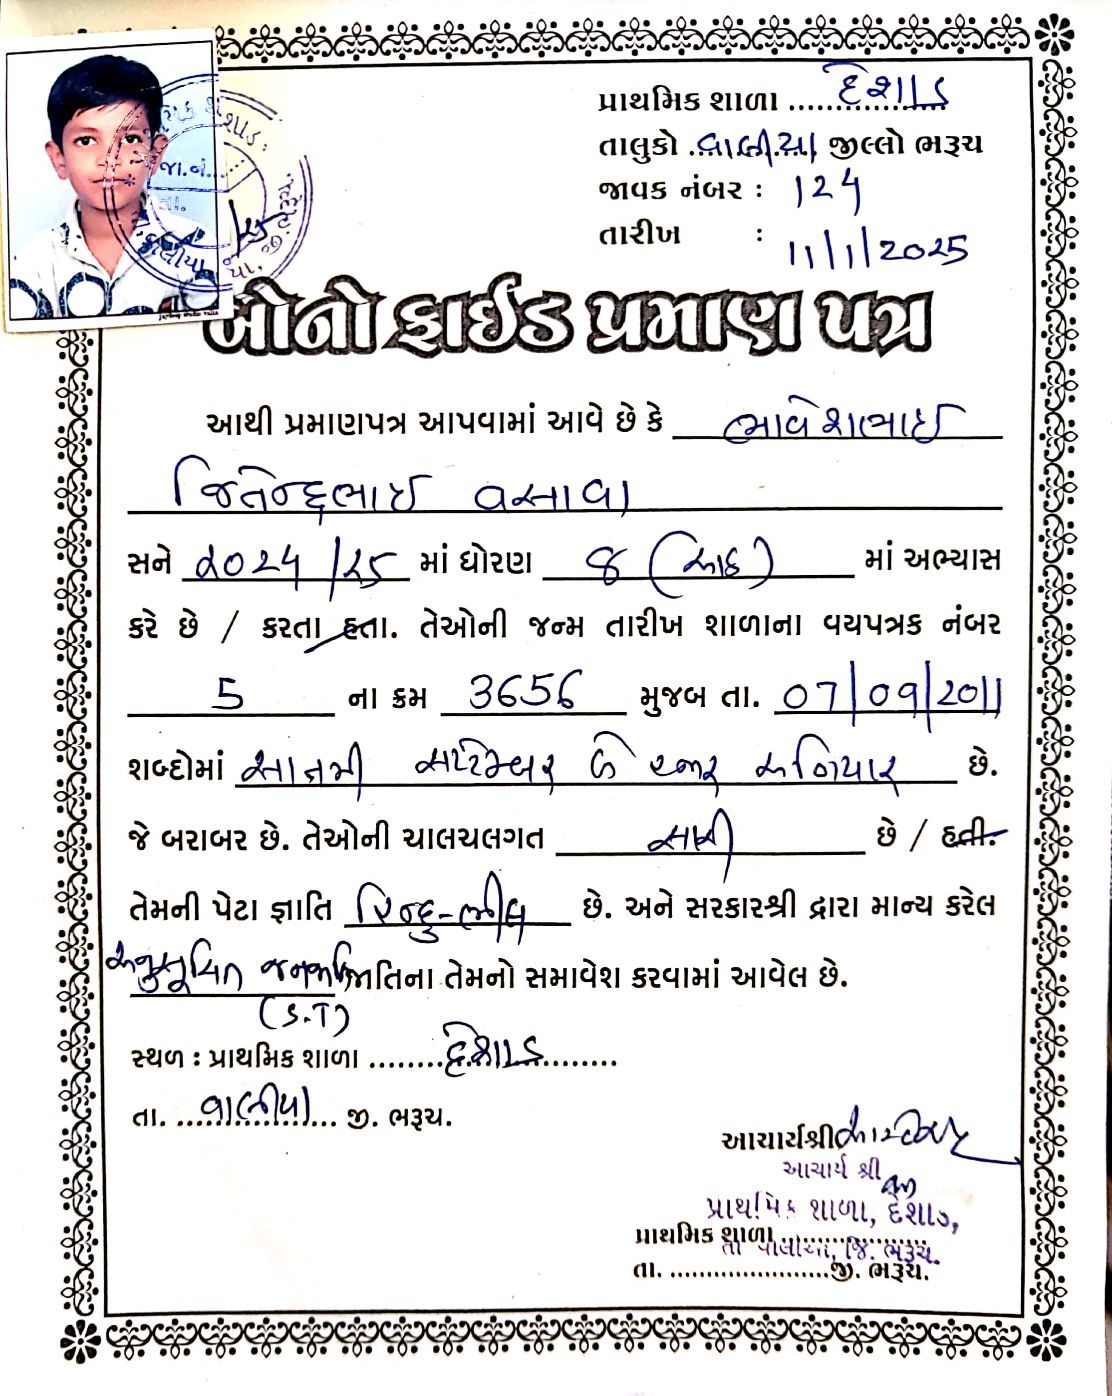 પ્રાથમિક શાળા ..દેશાડ..
તાલુકો ..વાલીયા.. જીલ્લો ભરૂચ
જાવક નંબર : 124
તારીખ : 11/1/2025
બોનો ફાઈડ પ્રમાણ પત્ર
આથી પ્રમાણપત્ર આપવામાં આવે છે કે ભાવેશભાઈ
જિતેન્દ્રભાઈ વસાવા
સને ૨૦૨૪/૨૫ માં ધોરણ ૮ (આઠ) માં અભ્યાસ
કરે છે / કરતા હતા. તેઓની જન્મ તારીખ શાળાના વયપત્રક નંબર
5 ના ક્રમ 3656 મુજબ તા. 07/09/2011
શબ્દોમાં સાતમી સપ્ટેમ્બર બે હજાર અગિયાર છે.
જે બરાબર છે. તેઓની ચાલચલગત સારી છે / હતી.
તેમની પેટા જ્ઞાતિ હિન્દુ-ભીલ છે. અને સરકારશ્રી દ્વારા માન્ય કરેલ
અનુસૂચિત જનજાતિ જાતિના તેમનો સમાવેશ કરવામાં આવેલ છે.
(S.T)
સ્થળ : પ્રાથમિક શાળા ........દેશાડ..........
તા. ..વાલીયા... જી. ભરૂચ.
આચાર્યશ્રી
આચાર્ય શ્રી
પ્રાથમિક શાળા, દેશાડ,
પ્રાથમિક શાળા ....................
તા વાલીયા, જિ. ભરૂચ.
તા. ......................જી. ભરૂચ.